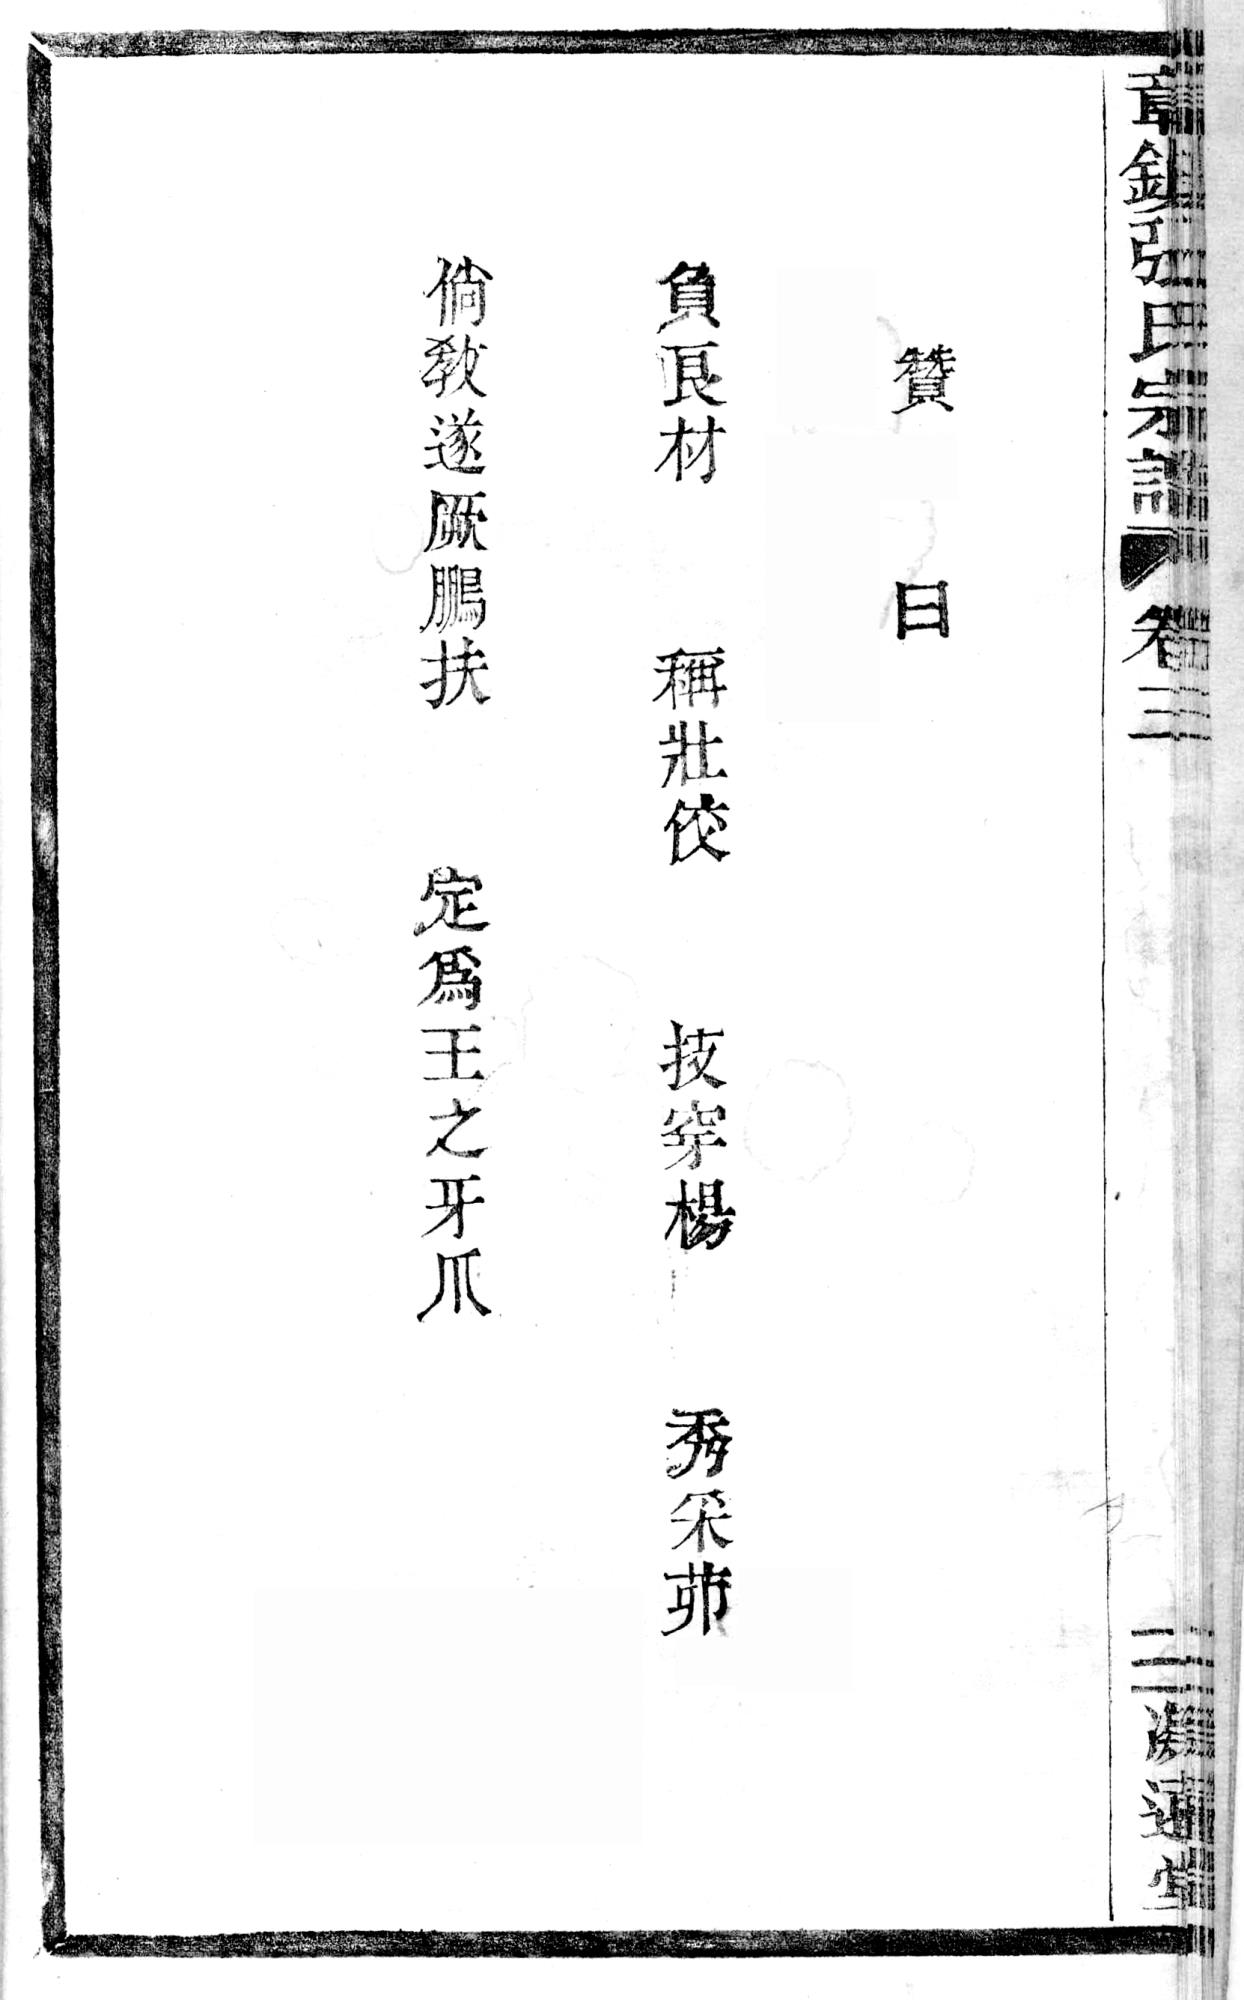 章鎮張氏宗譜 卷三 三 濟通堂
贊曰
負良材 稱壯佼 技穿楊 秀采茆
倘教遂厥鵬扶 定爲王之牙爪